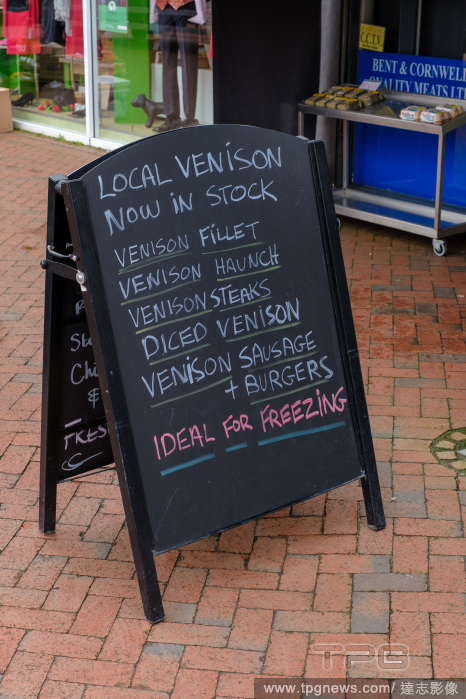 C.C.T.V.
BENT & CORNWELL
QUALITY MEATS LTD
LOCAL VENISON
NOW IN STOCK
VENISON FILLET
VENISON HAUNCH
VENISON STEAKS
DICED VENISON
VENISON SAUSAGE
+ BURGERS
IDEAL FOR FREEZING
&
TPG
www.tpgnews.com/達志影像